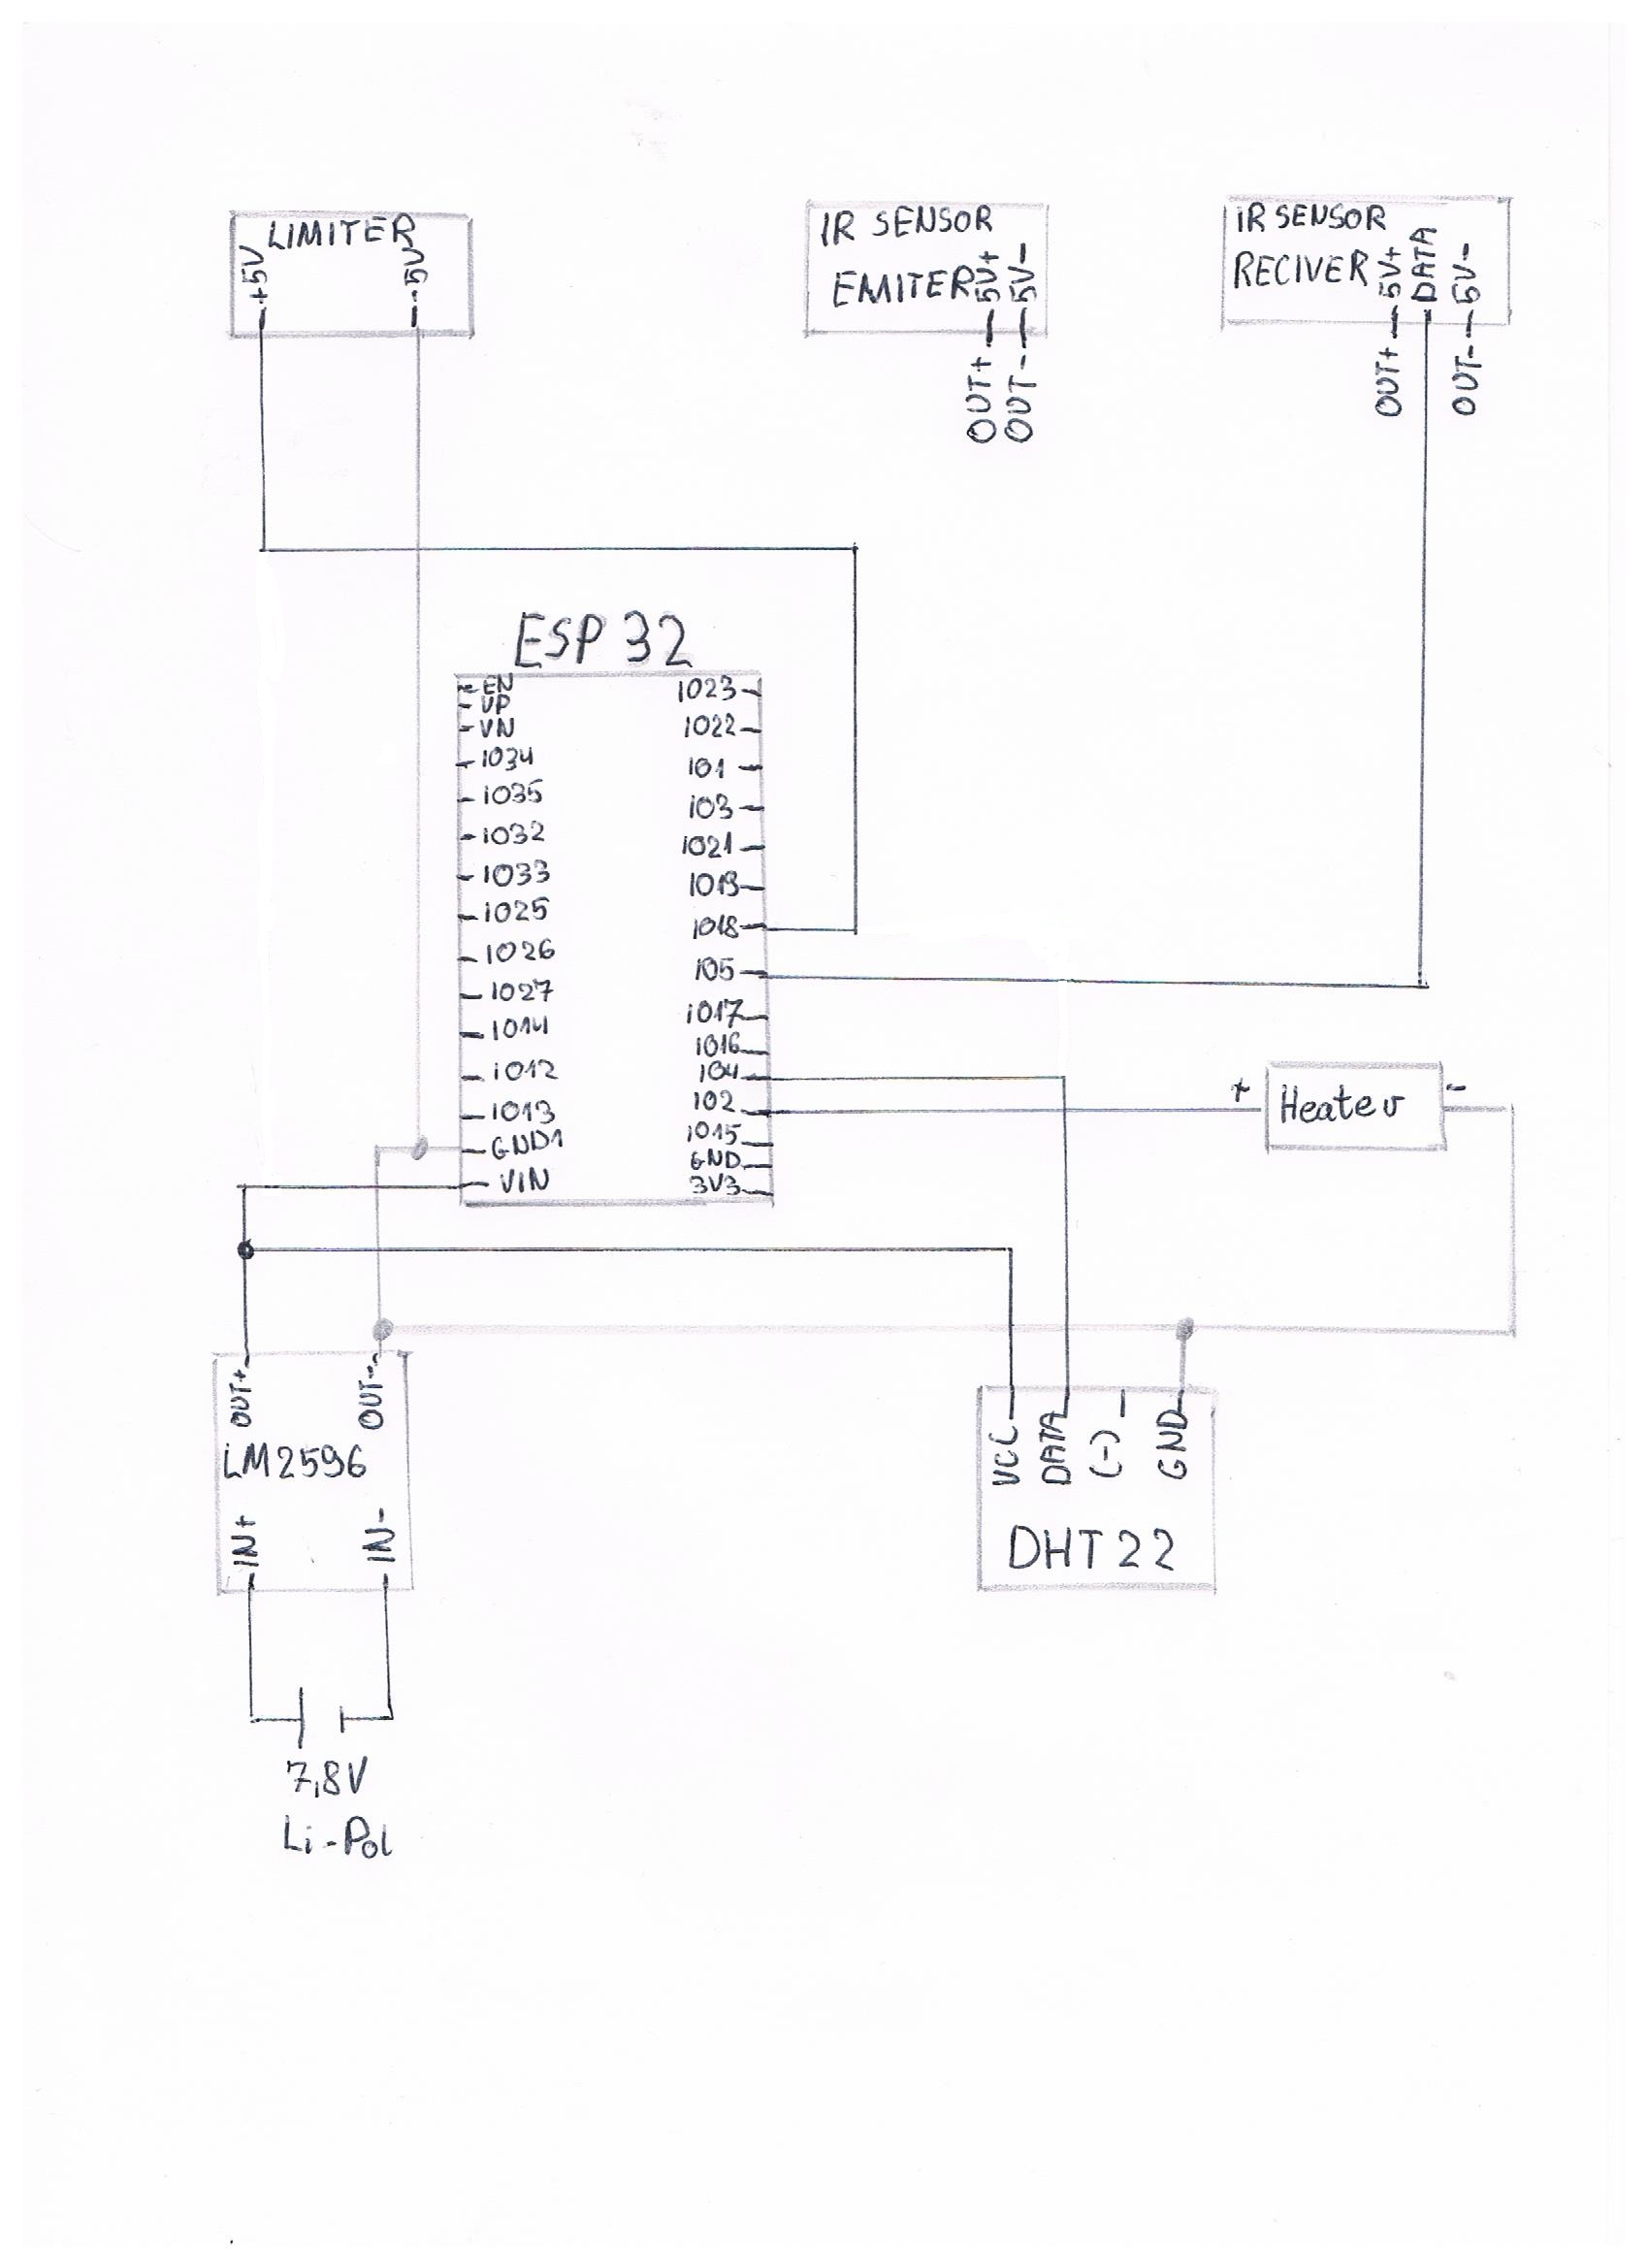 LIMITER
+5V
-5V
IR SENSOR
EMITER
5V+
5V-
OUT+
OUT-
IR SENSOR
RECIVER
5V+
DATA
5V-
OUT+
OUT-
ESP 32
EN
VP
VN
IO34
IO35
IO32
IO33
IO25
IO26
IO27
IO14
IO12
IO13
GND1
VIN
IO23
IO22
IO1
IO3
IO21
IO19
IO18
IO5
IO17
IO16
IO4
IO2
IO15
GND
3V3
+
Heater
-
OUT+
OUT-
LM2596
IN+
IN-
7,8V
Li-Pol
VCC
DATA
(-)
GND
DHT22